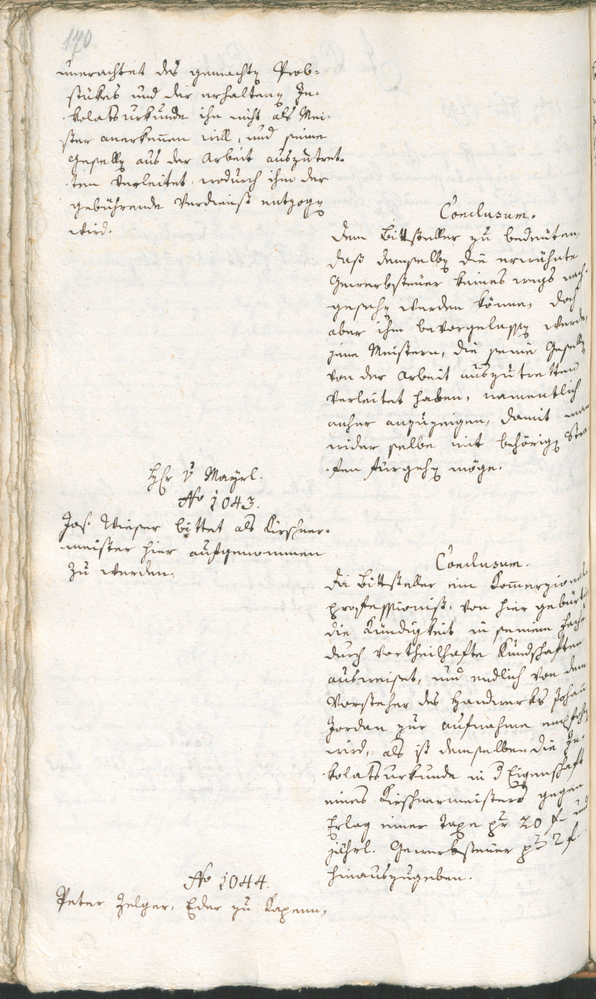 170
unerachtet des gemachten Prob-
stükes und der erhalteng In-
kolatsurkunde ihn nicht als Mei-
ster anerkennen will, und seine
Geselln aus der Arbeit auszutret-
ten verleitet, wodurch ihm der
gebührende Verdienst entzogen
wird.
Conclusum.
Dem Bittsteller zu bedeuten,
daß demselben die erwähnte
Gewerbsteuer keines wegs nach-
gesehen werden könne, doch
aber ihm bevorgelassen werde,
jene Meistern, die seine Geselln
von der Arbeit auszutretten
verleitet haben, namentlich
anher anzuzeigen, damit man
wider selbe mit behörigen Stra-
fen fürgehen möge.
Hr v Mayrl.
No 1043.
Jos. Wieser bittet als Kirschner-
meister hier aufgenommen
zu werden.
Conclusum.
Da Bittsteller ein Kommerzional
professionist, von hier gebürtig
die Kündigkeit in seinem Fache
durch vortheilhafte Kundschaften
ausweiset, und endlich von dem
Vorsteher des Handwerks Johan
Jordan zur Aufnahme empfohlen
wird, als ist demselben die In-
kolatsurkunde in d Eigenschaft
eines Kirschnermeisters gegen
Erlag einer Taxe pr 20 f und
jährl. Gewerbsteuer pr 2 f
hinauszugeben.
No 1044.
Peter Zelger, Eder zu Kapenn,